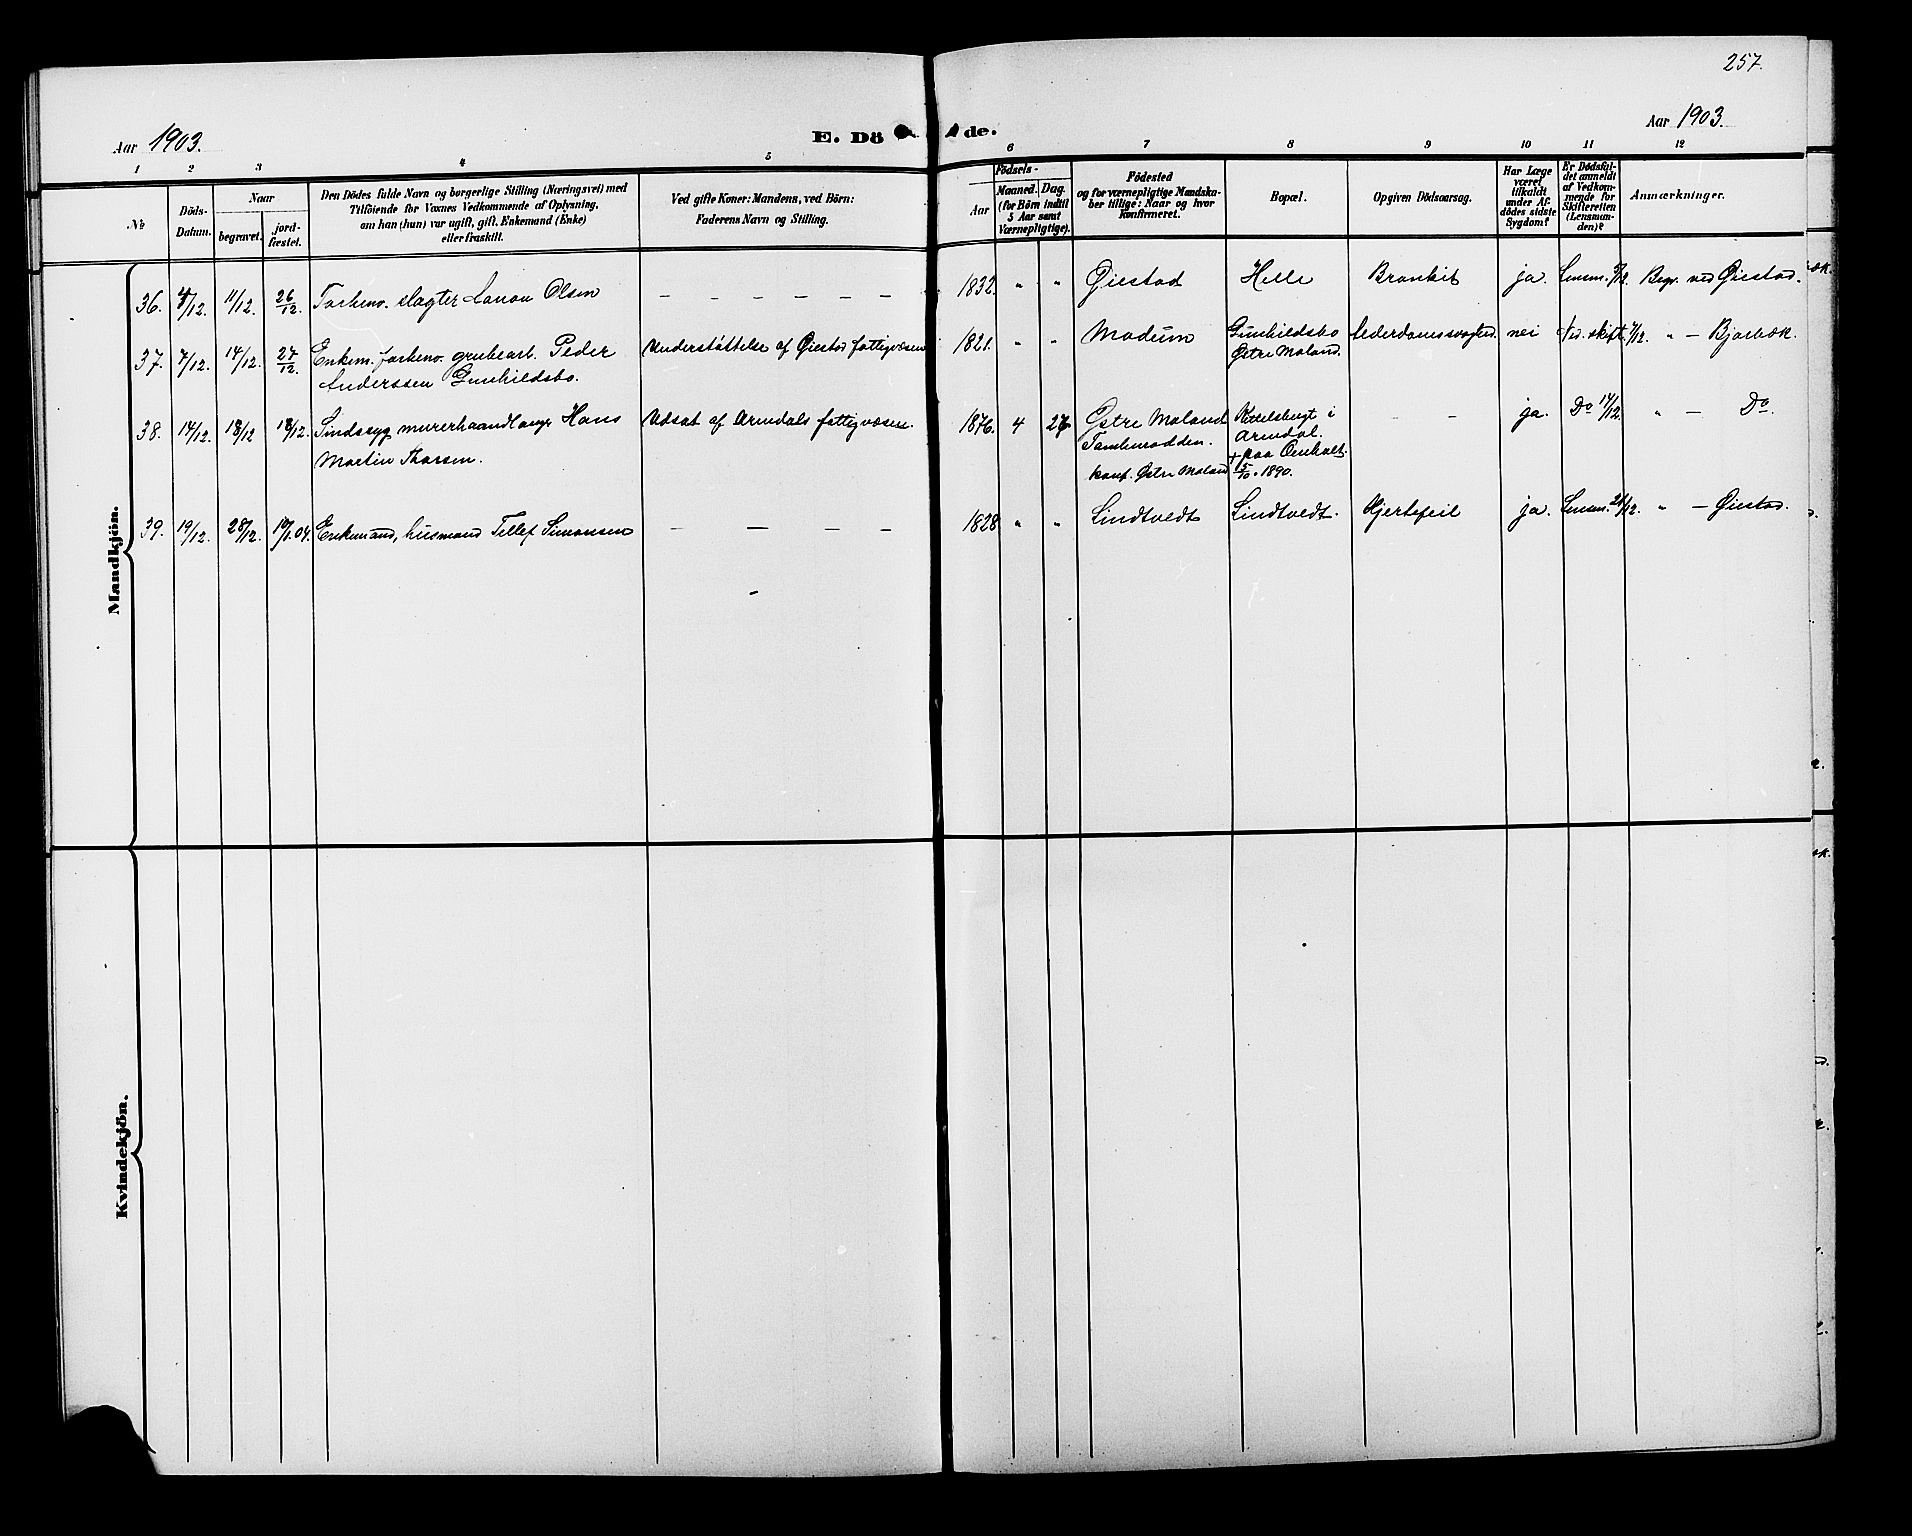 257.
Aar 1903.
E. Dö de.
Aar 1903.
1 2 3 4 5 6 7 8 9 10 11 12
No
Döds-Datum.
Naar
begravet.
jordfæstet.
Den Dödes fulde Navn og borgerlige Stilling (Næringsvei) med
Tilföiende for Voxnes Vedkommende af Oplysning,
om han (hun) var ugift, gift, Enkemand (Enke)
eller fraskilt.
Ved gifte Koner: Mandens, ved Börn:
Faderens Navn og Stilling.
Födsels-
Aar
Maaned.
Dag.
(for Börn indtil
5 Aar samt
Værnepligtige).
Födested
og for værnepligtige Mandska-
ber tillige: Naar og hvor
konfirmeret.
Bopæl.
Opgiven Dödsaarsag.
Har Læge
været
tilkaldt
under Af-
dödes sidste
Sygdom?
Er Dödsfal-
det anmeldt
af Vedkom-
mende for
Skifteretten
(Lensman-
den)?
Anmærkninger.
Mandkjön.
36. 4/12. 11/12. 26/12. Forhenv. slagter Olsen — — — — — — 1832. " " Øiestad Helle Bronkit ja. Lensm. 5/12. Begr. ved Øiestad.
37. 7/12. 14/12. 27/12. Enkem. forhenv. grubearb. Peder Understøttelse af Øiestad fattigvæsen 1821. " " Modum Gunhildsbo Alderdomssvaghed. nei Ned. skift. 7/12. " — Bjorbæk.
Anderssen Gunhildsbo. Østre Moland.
38. 14/12. 18/12 18/12. Sindssyg murerhaandlanger Hans Udsat af Arendals fattigvæsen. 1876. 4 27 Østre Moland Kittelsbugt i — — ja. Do 14/12. " — Do.
Martin Thorsen. arendal.
konf. Østre Moland + paa
5/10. 1890.
39. 19/12. 28/12. 10/1.04. Enkemand, husmand Tellef Simonsen — — — — 1828 " " Lindtvedt Lindtvedt. Hjertefeil ja. Lensm. 21/12. " — Øiestad.
Kvindekjön.